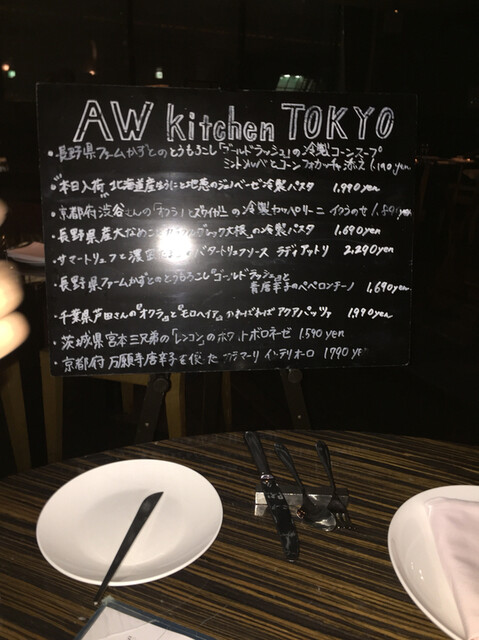 AW kitchen TOKYO
・長野県ファームかずとのとうもろこし「ゴールドラッシュ」の冷製コーンスープ
ミントオイルとコーンフォカッチャ添え 1,190yen
"本日入荷" 北海道産うにと地恵のジェノベーゼ冷製パスタ 1,990yen
・京都府渋谷さんの「オクラ」とズワイガニの冷製カッペリーニ イクラのせ
・長野県産大なめこ 大根の冷製パスタ 1,690yen
・サマートリュフと濃 バタートリュフソース タディアットリ 2,290yen
・長野県ファームかずとのとうもろこし「ゴールドラッシュ」と
青唐辛子のペペロンチーノ 1,690yen
・千葉県戸田さんの『オクラ』と『モロヘイヤ』 アクアパッツァ 1,990yen
・茨城県宮本三兄弟の「レンコン」のホワイトボロネーゼ 1,590yen
・京都府万願寺唐辛子を使った カラマーリ インテリオーロ 1790ye